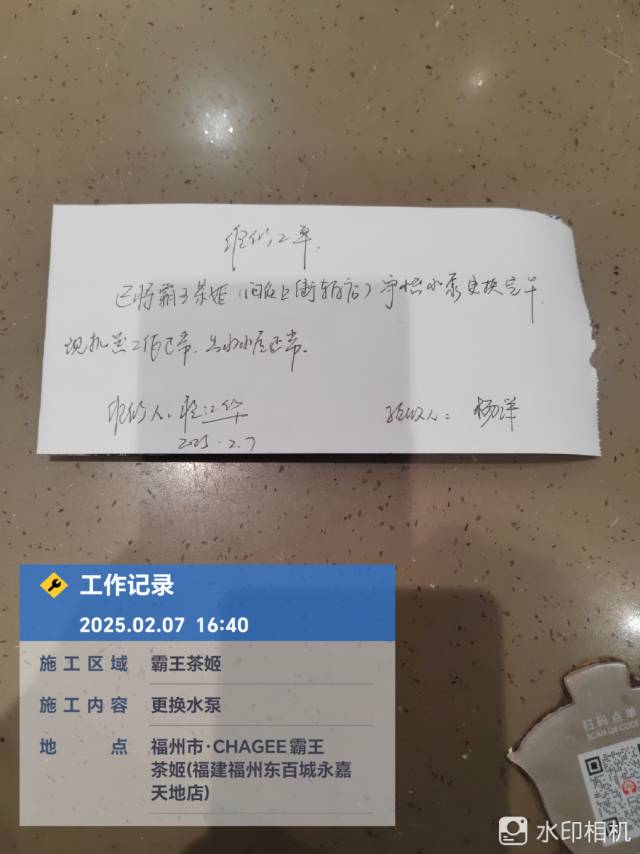 维修工单
已将霸王茶姬(闽侯上街新店)净水水泵更换完毕.
现机器工作正常.出水水压正常.
维修人:
2025.2.7
验收人:杨洋
工作记录
2025.02.07 16:40
施工区域 霸王茶姬
施工内容 更换水泵
地点 福州市·CHAGEE霸王
茶姬(福建福州东百城永嘉
天地店)
扫码点单
SCAN QR CODE
水印相机